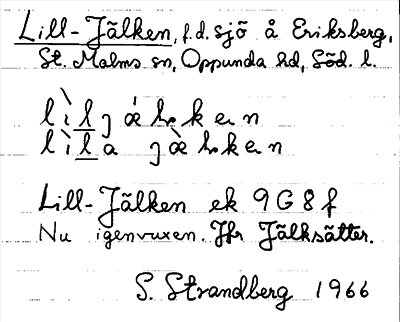 Lill-Jälken, f.d. sjö å Eriksberg,
St. Malms sn, Oppunda hd, Söd. l.
lìlȷǽlₒkɐn
lìla ȷæ̀lₒkɐn
Lill-Jälken ek 9G8f
Nu igenvuxen. Jfr Jälksätter.
S. Strandberg 1966